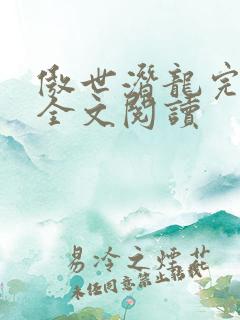 傲世潛龍完
全文閱讀
易冷之煙花
未經同意禁止轉載